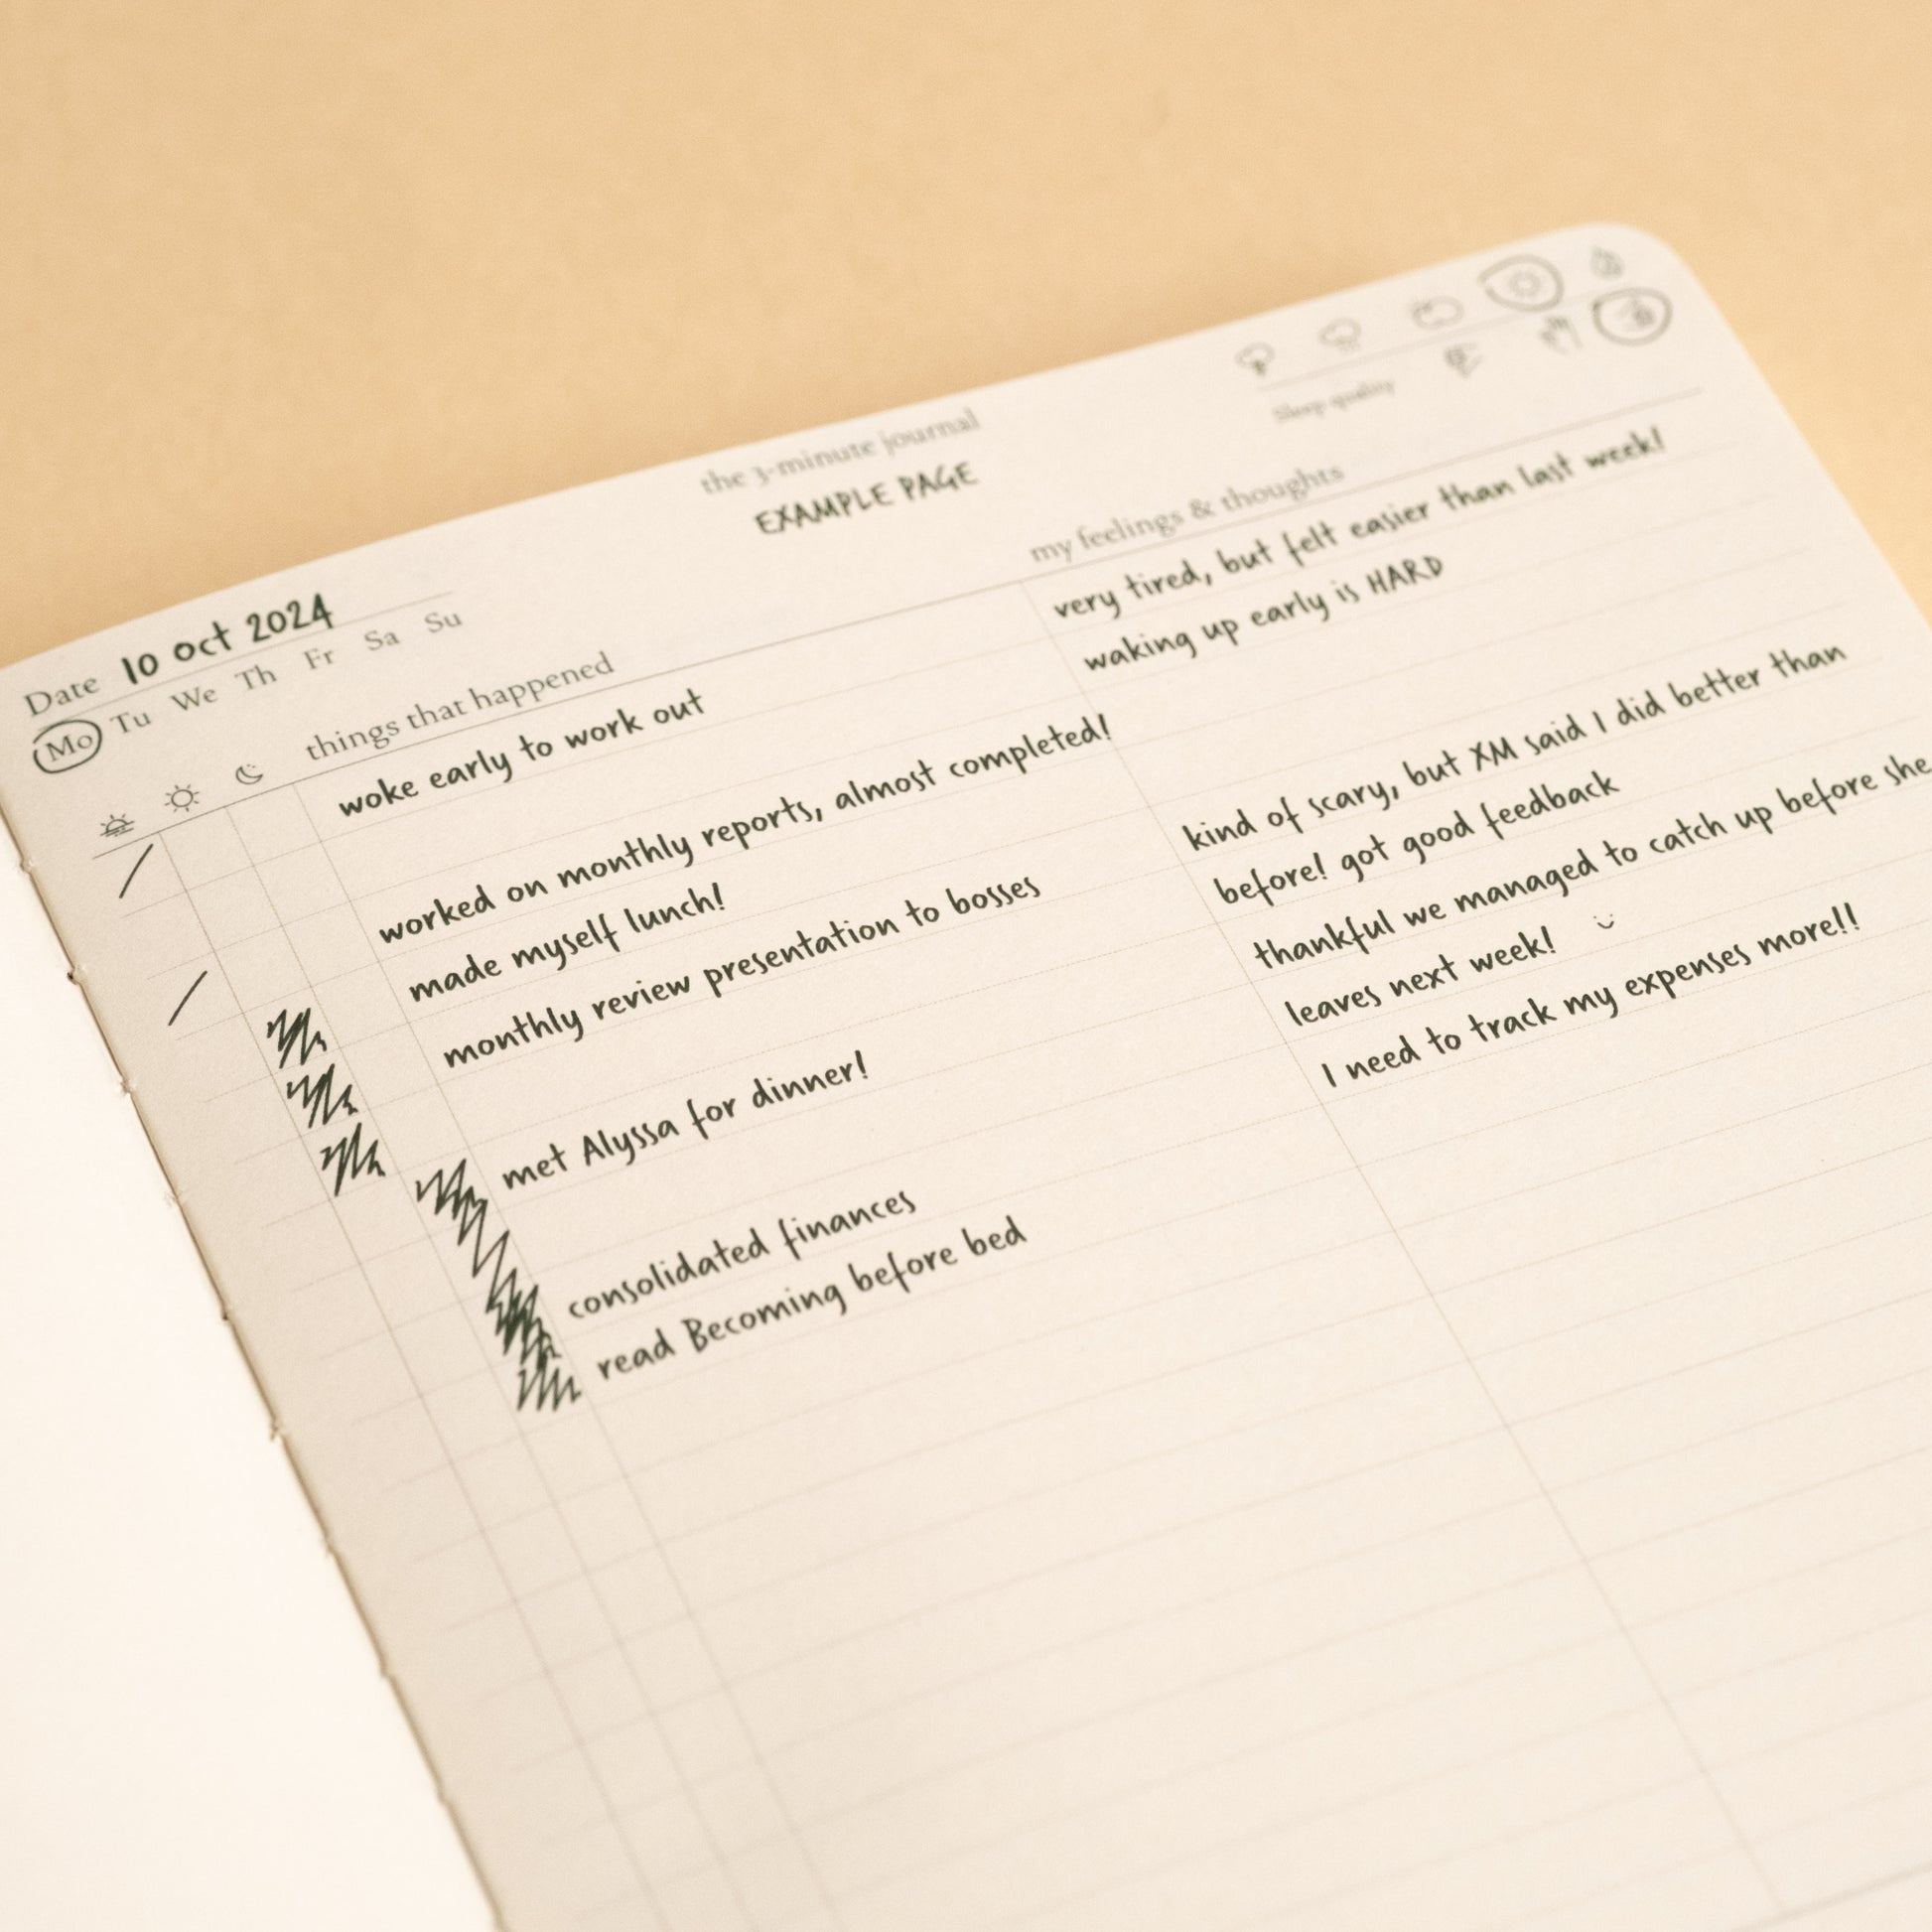 the 3-minute journal
EXAMPLE PAGE
Date 10 oct 2024
Mo Tu We Th Fr Sa Su
Sleep quality
things that happened
woke early to work out
worked on monthly reports, almost completed!
made myself lunch!
monthly review presentation to bosses
met Alyssa for dinner!
consolidated finances
read Becoming before bed
my feelings & thoughts
very tired, but felt easier than last week!
waking up early is HARD
kind of scary, but XM said I did better than
before! got good feedback
thankful we managed to catch up before she
leaves next week!
I need to track my expenses more!!